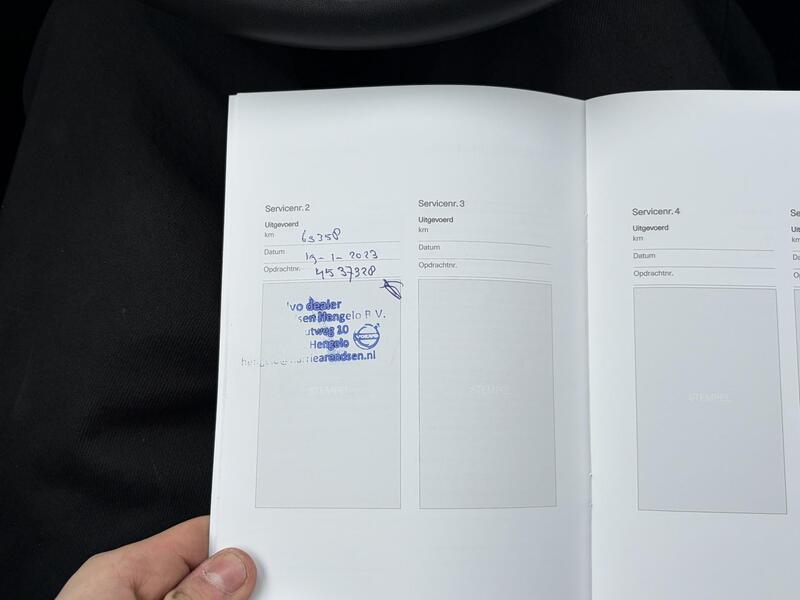 Servicenr. 2
Uitgevoerd
km 65358
Datum 19-1-2023
Opdrachtnr. 4537328
vo dealer
sen Hengelo B.V.
utweg 10
Hengelo
VOLVO
arendsen.nl
STEMPEL
Servicenr. 3
Uitgevoerd
km
Datum
Opdrachtnr.
STEMPEL
Servicenr. 4
Uitgevoerd
km
Datum
Opdrachtnr.
STEMPEL